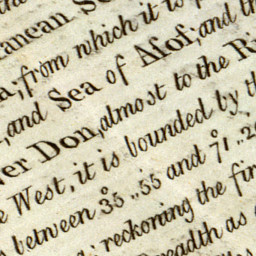 ranean Se
a; from which it is
, and Sea of Asof; and th
ver Don, almost to the Ri
e West, it is bounded by th
between 35..55 and 71..2
; reckoning the fir
readth as